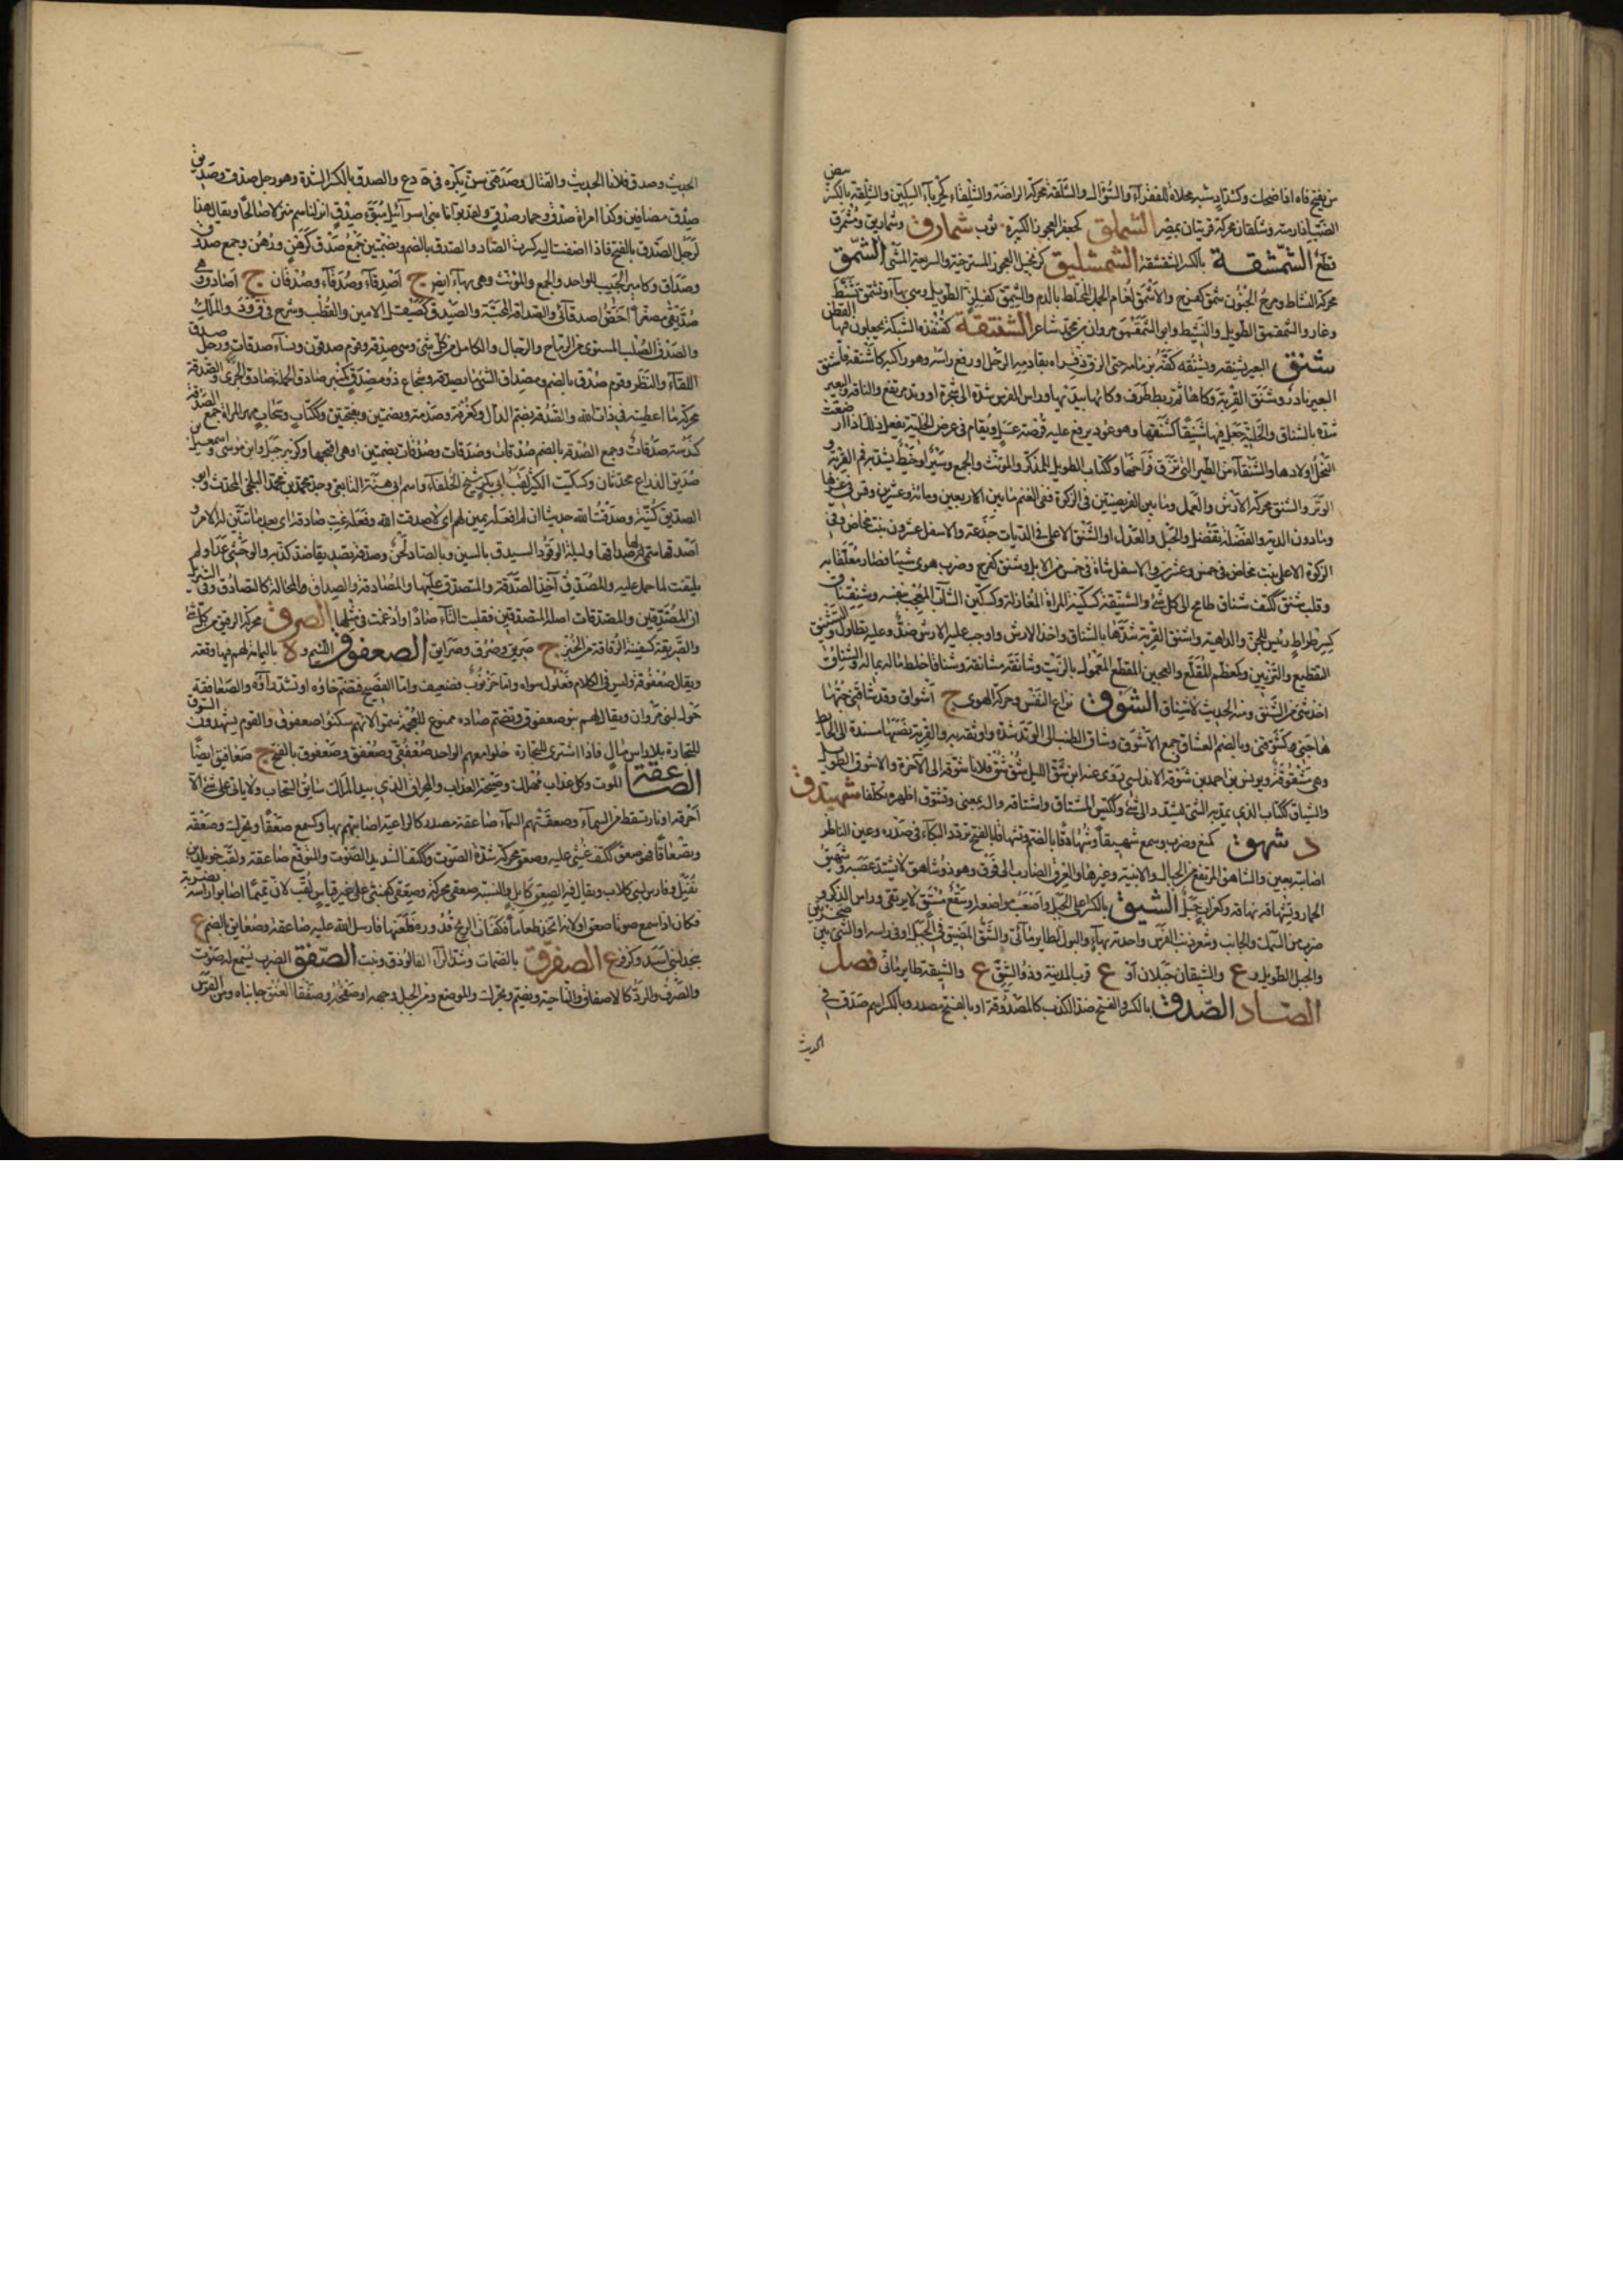 من يفتح فاه اذا ضحك وكشداد شبه مخلاة للفقراء والسؤال والشلقة محركة الراضة والشلقاء كحرباء السكين والشلقة بالكسر
بيض الضب اذا رمته وشلقان محركة قريتان بمصر الشملق كجعفر العجوز الكبيرة ثوب شمارق وشماريق ومشمرق
قطع الشمشقة بالكسر الشقشقة الشمشليق كزنجبيل العجوز المسترخية والسريعة المشى الشمق
محركة النشاط ومرح الجنون شمق كفرح والاشمق لغام الجمل المختلط بالدم والشمق كفلز الطويل وهى بهاء وتشمق تنشط
وغار والشمقمق الطويل والنشيط وابو الشمقمق مروان بن محمد شاعر الشنتقة كقنفذة الشبكة يجعلون فيها القطن
شنق البعير يشنقه ويشنقه كفه بزمامه حتى الزق ذفراه بقادمة الرحل او رفع راسه وهو راكبه كاشنقه فاشنق
البعير نادر وشنق القربة وكاها ثم ربط طرف وكائها بيديها وراس الفرس شده الى شجرة او وتد مرتفع والناقة والبعير
شده بالشناق والخلية جعل فيها شنيقا كشنقها وهو عود يرفع عليه قرصة عسل ويقام فى عرض الخلية يفعل ذلك اذا ارضعت
النحل اولادها والشنقاء من الطير التى تزق فراخها وككتاب الطويل للمذكر والمونث والجمع وسير او خيط يشد به فم القربة و
الوتر والشنق محركة الارش والعمل وما بين الفريضتين فى الزكوة ففى الغنم ما بين الاربعين ومائة وعشرين وقس فى غيرها
وما دون الدية والفضلة تفضل والحبل والعدل او الشنق الاعلى فى الديات جذعة والاسفل عشرون بنت مخاض وفى
الزكوة الاعلى بنت مخاض فى خمس وعشرين والاسفل شاة فى خمس من الابل وشنق كفرح وضرب هوى شيئا فصار معلقا به
وقلب شنق ككتف شناق طامح الى كل شئ والشنيقة كسكينة المراة المغازلة وكسكين الشاب المعجب بنفسه وشنقناق
كسرطراط رئيس للجن والداهية واشنق القربة شدها بالشناق واخذ الارش واوجب عليه الارش ضد وعليه تطاول والتشنيق
التقطيع والتزيين وكمعظم المقطع والعجين المقطع المعمول بالزيت وشانقه مشانقة وشناقا خلط ماله بماله والشناق
اخذ شئ من الشنق ومنه الحديث لا شناق الشوق نزاع النفس وحركة الهوى ج اشواق وقد شاقنى حبها
هاجنى كشوقنى وبالضم العشاق جمع الاشوق وشاق الطنب الى الوتد شده واوثقه به والقربة نصبها مسندة الى الحائط
وهى مشوقة ويونس بن احمد بن شوقة الاندلسى روى عنه ابن شق الليل شق شق فلانا شوقه الى الآخرة والاشوق الطويل
والشياق ككتاب الذى يمد به الشئ ليشد الى شئ وككيس المشتاق واشتاقه واليه بمعنى وتشوق اظهره تكلفا شهبيدق
د شهق كمنع وضرب وسمع شهيقا وشهاقا بالضم وتشهاقا بالفتح تردد البكاء فى صدره وعين الناظر
اصابته بعين والشاهق المرتفع من الجبال والابنية وغيرها والعرق الضارب الى فوق وهو ذو شاهق لا يشتد غضبه وشهيق
الحمار وتشهاقه نهاقه وكغراب جبل الشيق بالكسر اعلى الجبل واصعب مواضعه او سقع مستو لا يرتقى وراس الذكر و
ضرب من السمك والجانب وشعر ذنب الفرس واحدته بهاء والبرك لطاير مائى والشق الضيق فى الجبل او فى راسه او الشئ بين صخرتين
والجبل الطويل و ع والشيقان جبلان او ع قرب المدينة وذو الشيق ع والشيقة طاير مائى فصل
الصاد الصدق بالكسر والفتح ضد الكذب كالمصدوقة او بالفتح مصدر وبالكسر اسم صدق فى
الحديث
الحديث وصدق فلانا الحديث والقتال وصدقنى سن بكره فى ه د ع والصدق بالكسر الشدة وهو رجل صدق وصديق
صدق مضافين وكذا امراة صدق وحمار صدق ولقد بوأنا بنى اسرآئيل مبوأ صدق انزلناهم منزلا صالحا ويقال هذا
الرجل الصدق بالفتح فاذا اضفت اليه كسرت الصاد والصدق بالضم وبضمتين جمع صدق كرهن ورهن وجمع صدوق
وصداق وكامير الحبيب للواحد والجمع والمونث وهى بهاء ايضا ج اصدقاء وصدقاء وصدقان ج اصادق وهو
صديقى مصغرا اخص اصدقائى والصداقة المحبة والصيدق كصيقل الامين والقطب وشرح فى ق و د والملك
والصدق الصلب المستوى من الرماح والرجال والكامل من كل شئ وهى صدقة وقوم صدقون ونساء صدقات ورجل صدق
اللقاء والنظر وقوم صدق بالضم ومصداق الشئ ما يصدقه وشجاع ذو مصدق كمنبر صادق الحملة صادق الجرى والصدقة
محركة ما اعطيته فى ذات الله والصدقة بضم الدال وكغرفة وصدمة وبضمتين وبفتحتين وككتاب وسحاب مهر المراة جمع الصدقة
كندسة صدقات وجمع الصدقة بالضم صدقات وصدقات وصدقات بضمتين وهى اقبحها وكزبير جبل وابن موسى واسمعيل بن
صديق الذراع محدثان وكسكيت الكثير لقب ابى بكر شيخ الخلفاء واسم ابى هند التابعى وجد محمد بن محمد البلخى المحدث وابو
الصديق كنية وصدقت الله حديثا ان لم افعل يمين لهم اى لا صدقت الله وفعله غب صادقة اى بعد ما تبين له الامر و
اصدقها سمى لها صداقها وليلة الوقود السدق بالسين وبالصاد لحن وصدقه تصديقا ضد كذبه والوحشى عدا ولم
يلتفت لما حمل عليه والمصدق آخذ الصدقة والمتصدق معطيها والمصادقة والصداق والمخالة كالتصادق وفى التنزيل
ان المصدقين والمصدقات اصله المتصدقين فقلبت التاء صادا وادغمت فى مثلها الصرق محركة الرقيق من كل شئ
والصريقة كسفينة الرقاقة من الخبز ج صريق وصرق وصرايق الصعفوق اللئيم و ة باليمامة لهم فيها وقعة
ويقال صعفوقة وليس فى الكلام فعلول سواه واما خرنوب فضعيف واما الفصيح فيضم خاؤه او تشدد راؤه والصعافقة
خول لبنى مروان ويقال لهم بنو صعفوق ويضم صاده ممنوع للعجمة سموا لانهم سكنوا صعفوق والقوم يشهدون السوق
للتجارة بلا راس مال فاذا اشترى التجار دخلوا معهم الواحد صعفقى وصعفق وصعفوق بالفتح ج صعافيق ايضا
الصاعقة الموت وكل عذاب مهلك وصيحة العذاب والمخراق الذى بيد الملك سائق السحاب ولا ياتى على شئ الا
احرقه او نار تسقط من السماء وصعقتهم السماء صاعقة مصدر كالراعية اصابتهم بها وكسمع صعقا ويحرك وصعقة
وتصعاقا فهو صعق ككتف غشى عليه وصعق محركة شدة الصوت وككتف الشديد الصوت والمتوقع صاعقة ولقب خويلد بن
نفيل وفارس لبنى كلاب ويقال فيه الصعق كابل والنسبة صعقى محركة وصعقى كعنبى على غير قياس لقب لان تميما اصابوا راسه بضربة
فكان اذا سمع صوتا صعق او لانه اتخذ طعاما فكفات الريح قدوره فلعنها فارسل الله عليه صاعقة وصعايق بالضم ع
بنجد لبنى اسد وكزفر ع الصفرق بالضمات وشد الراء الفالوذق ونبت الصفق الضرب يسمع له صوت
والصرف والرد كالاصفاق والناحية ويضم ويحرك والموضع ومن الجبل وجهه او صفحه وصفقا العنق جانباه ومن الفرس